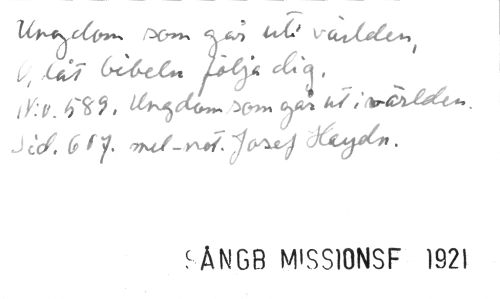 Ungdom som går uti världen,
O, låt bibeln följa dig.
N:o. 589. Ungdom som går ut i världen.
Sid. 617. mel-not. Josef Haydn.
SÅNGB MISSIONSF 1921